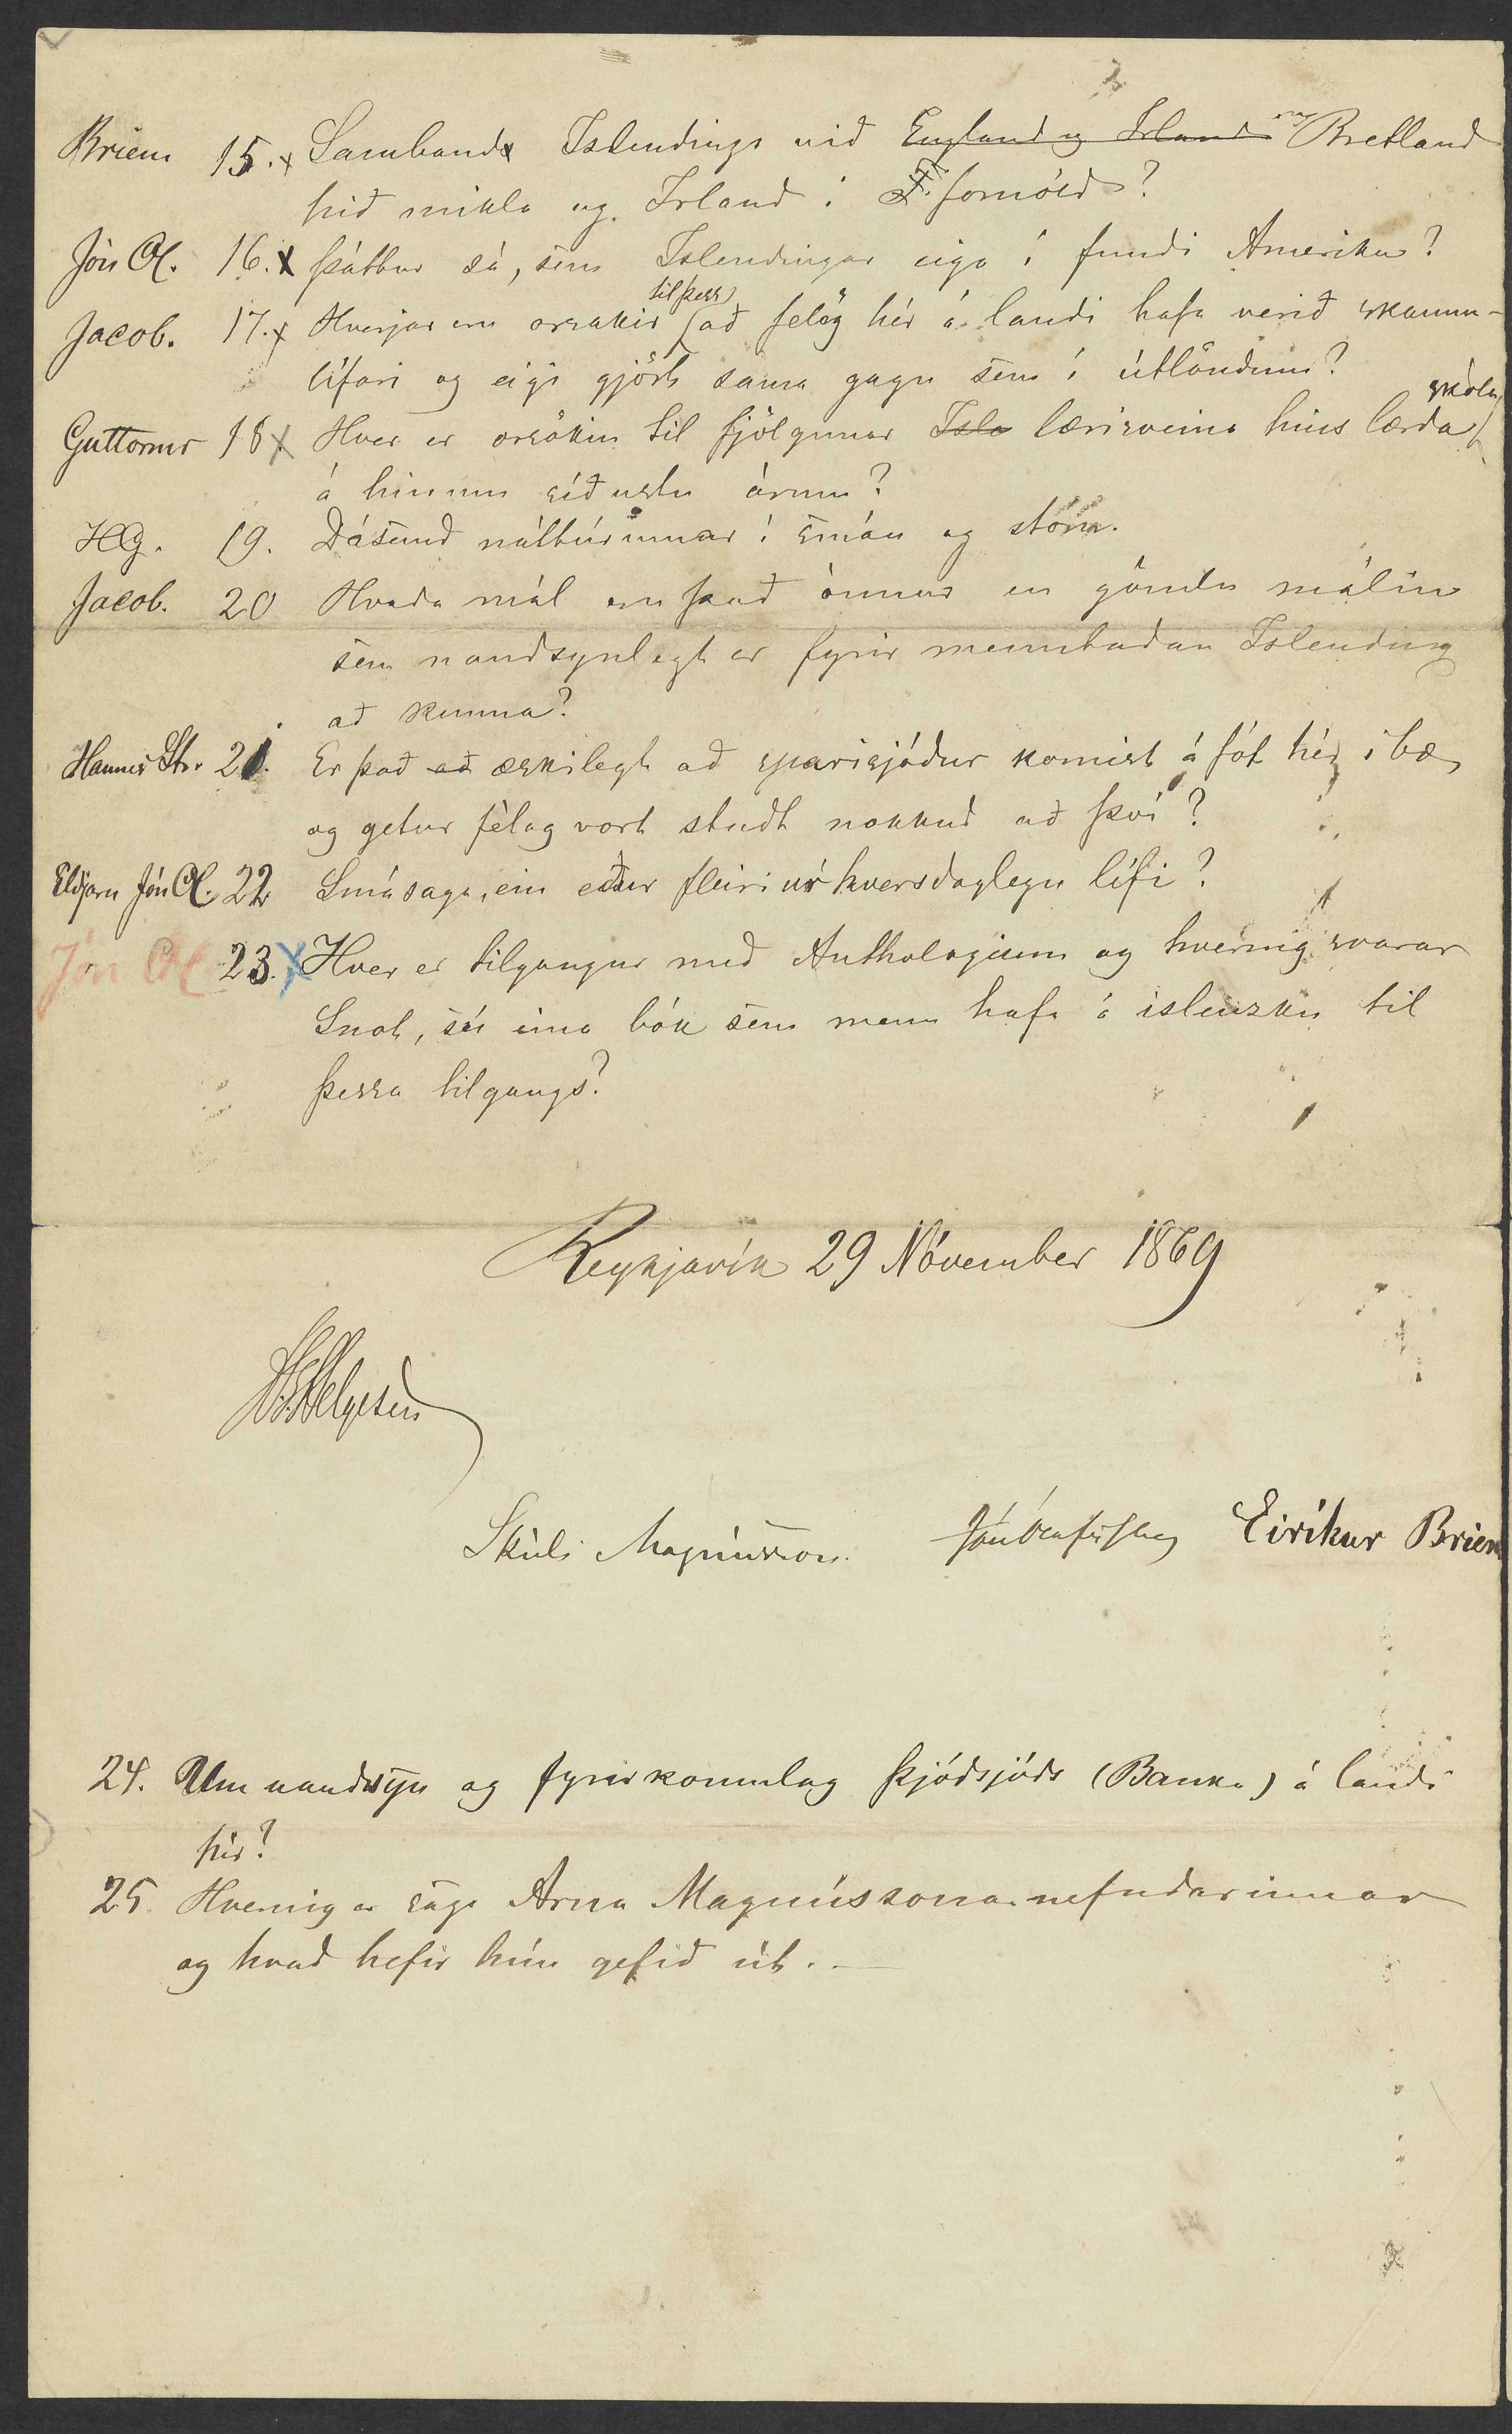 Briem 15. x Sambands Islendinga við England og Irland Bretland
hið mikla og Irland í F. fornöld?
Jón Ól. 16. x Þáttur sá, sem Islendingar eiga í fundi Ameriku?
til þess
Jacob. 17. x Hverjar eru orsakir að felög hér á landi hafa verið skamm-
lífari og eigi gjört sama gagn sem í útlöndum?
skóla
Guttormr 18 x Hver er orsökin til fjölgunar Isle lærisveina hins lærða
á hinum síðustu árum?
HG. 19. Dásemd náttúrunnar í smáu og stóru.
Jacob. 20 Hvada mál eru það önnur en gömlu málin
sem naudsynlegt er fyrir menntadan Islending
að kunna?
Hannes St. 21. Er það að æskilegt að sparisjóður komist á fót hér í bæ,
og getur félag vort studt nokkuð að því?
Eldjarn Jón Ól. 22 Smásaga, ein eður fleiri úr hversdaglegu lífi?
Jón Ól 23. x Hver er tilgangur með Anthologium og hvernig svarar
Snot, sú eina bók sem menn hafa á islenzku til
þessa tilgangs?
Reykjavík 29 Nóvember 1869
HEHelgesen
Skúli Magnússon. Jón Ólafsson Eiríkur Briem
24. Um naudsyn og fyrirkomulag Þjódsjóds (Banka) á landi
hér?
25. Hvernig er saga Arna Magnússonar nefndarinnar
og hvad hefir hún gefið út. —